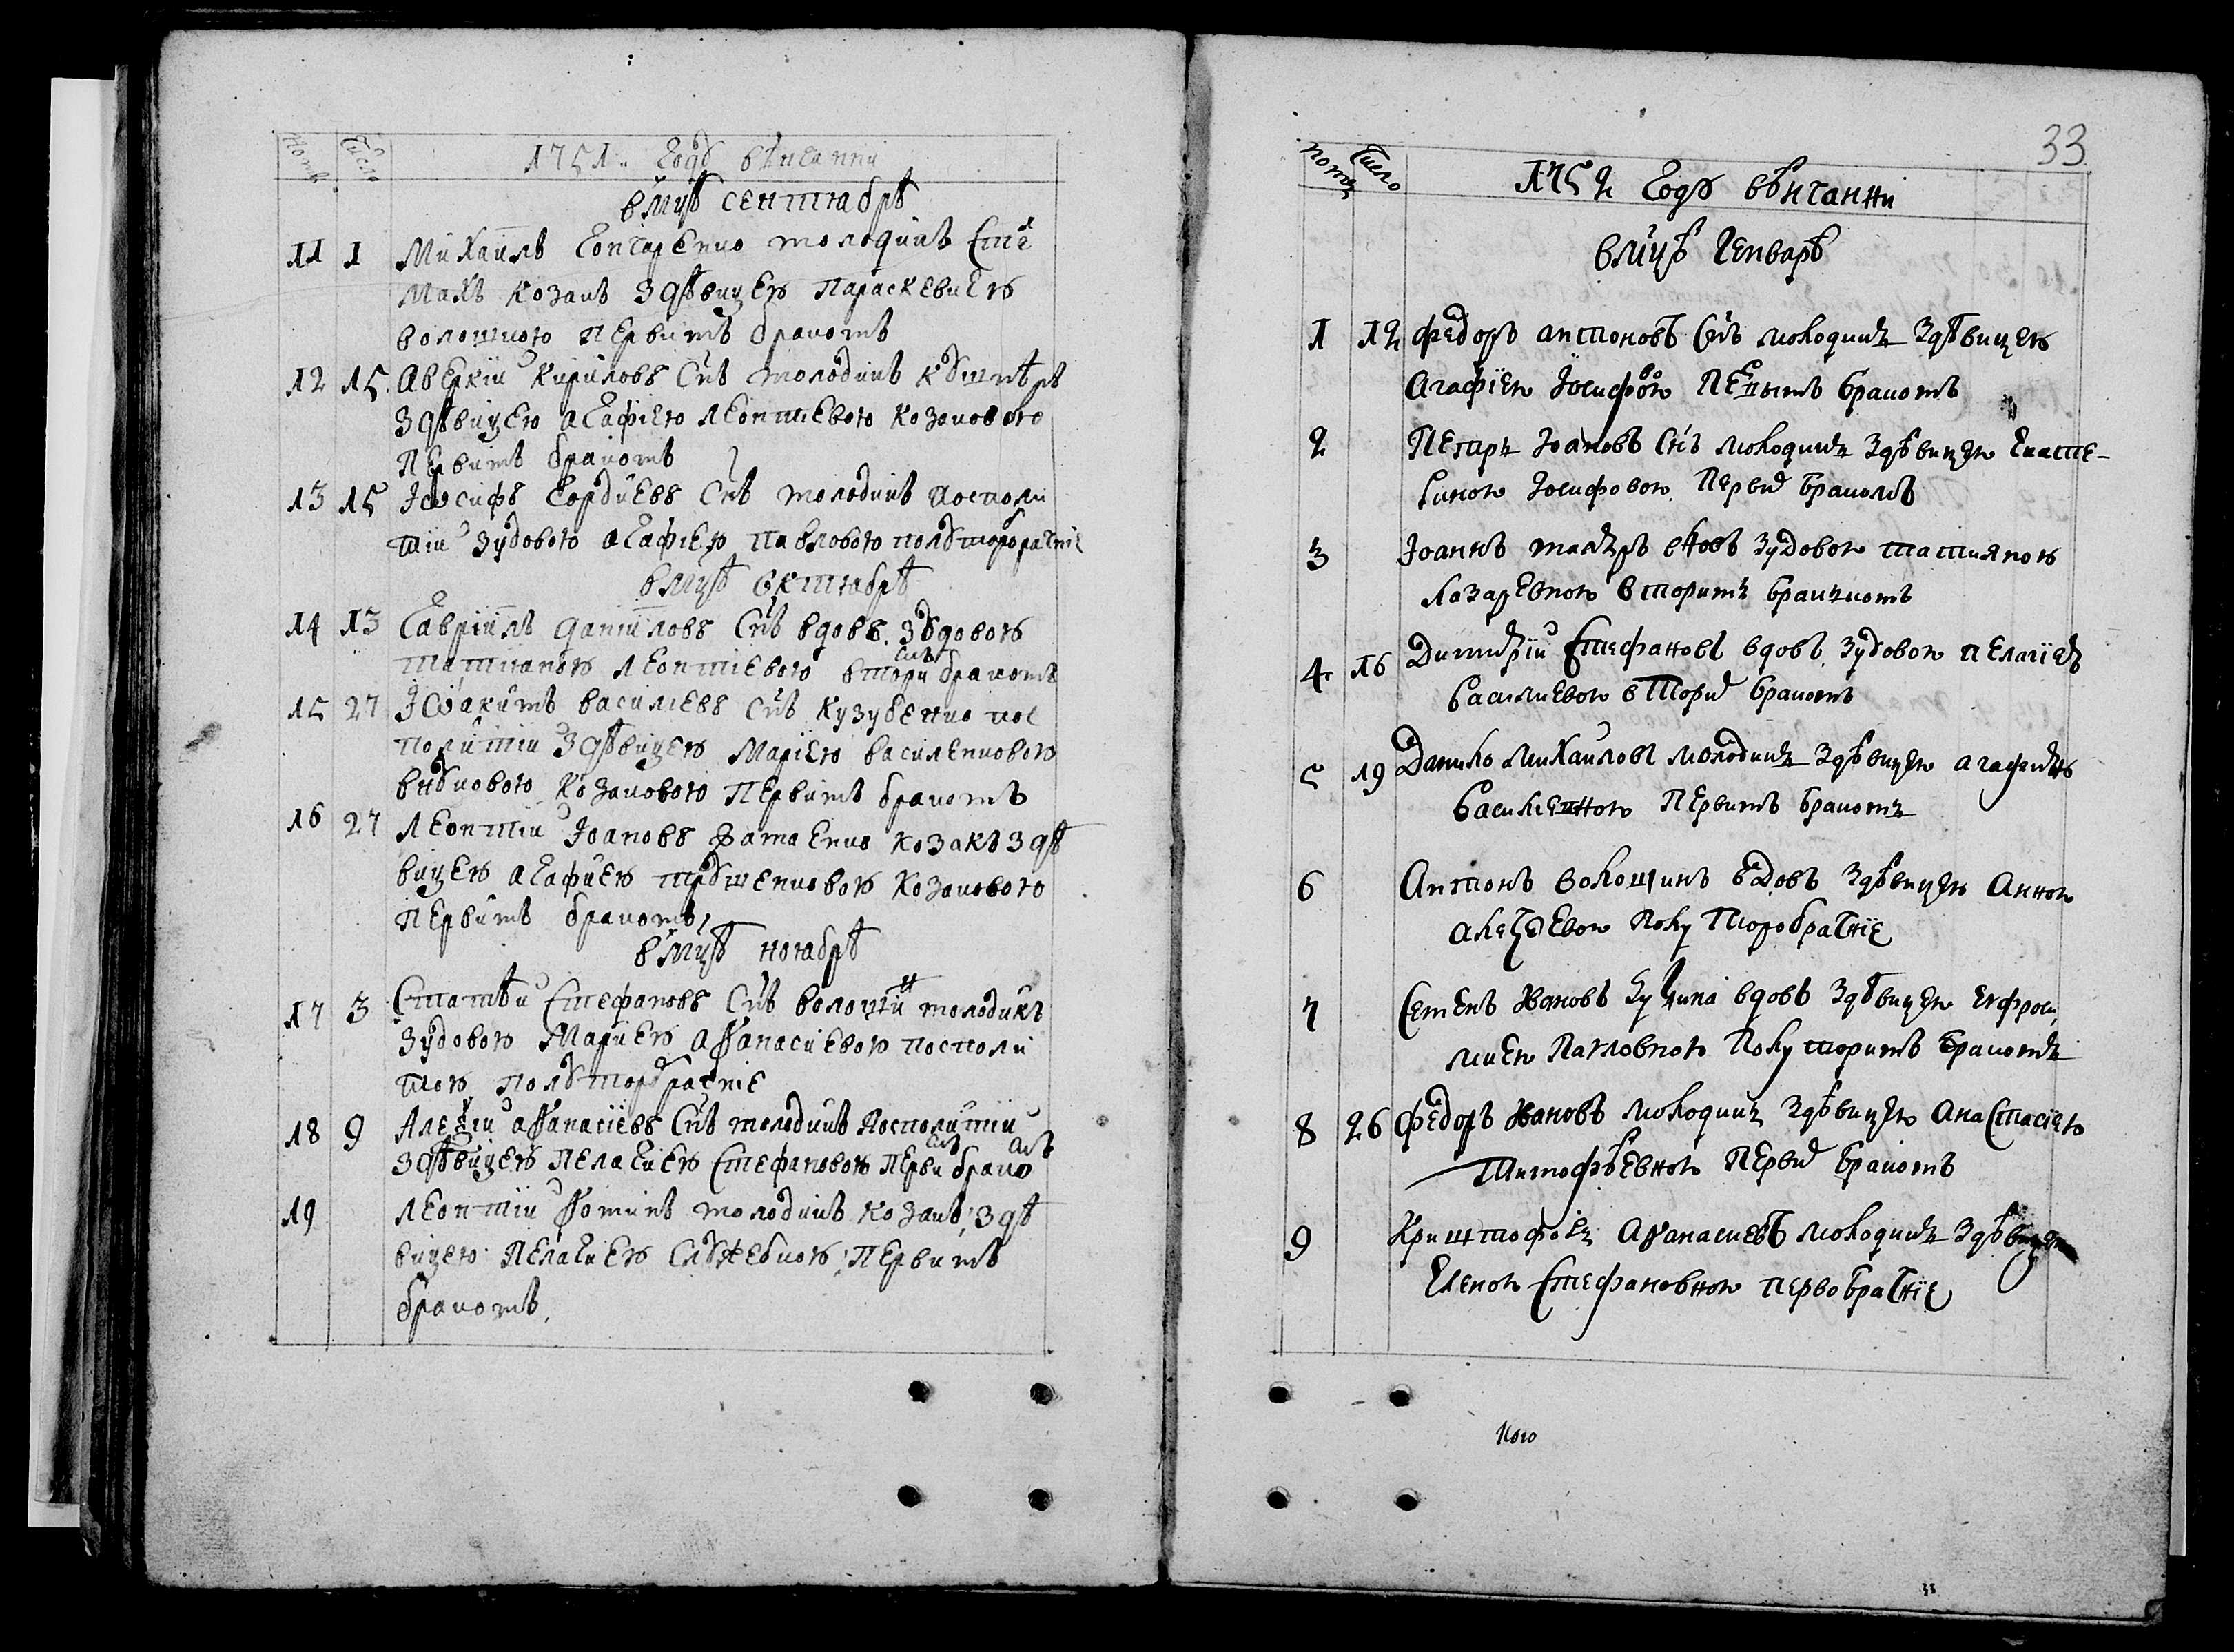 Номѣ Число 1751 Годъ вѣнчанни
в мцѣ сентиабрѣ
11 1 Михаилъ Гончаренко молодикъ
козакъ з дѣвицею Параскевиею
волошкою первимъ бракомъ
12 15 Аверкіи Кириловъ снъ молодикъ кушнѣръ
з дѣвицею Агафіею Леонтиевою козаковою
первимъ бракомъ
13 15 Іѡсифъ Гордиевъ снъ молодикъ посполи
тіи з удовою Агафіею Павловою полуторобрачніе
в мцѣ октиабрѣ
14 13 Гавріилъ Даніиловъ снъ вдовъ з вдовою
Татіаною Леонтіевою вторимъ бракомъ
15 27 Іѡакимъ Василіевъ снъ Кузубенко пос
политіи з дѣвицею Маріею Василенковою
внукою козаковою первимъ бракомъ
16 27 Леонтіи Іоановъ козакъ з дѣ
вицею Агафиею козаковою
первимъ бракомъ
в мцѣ ноіабрѣ
17 3 Стефановъ снъ волошин молодикъ
з удовою Мариею Аѳанасиевою посполи
тою полуторобрачніе
18 9 Алеѯіи Аѳанасіевъ снъ молодикъ посполитіи
з дѣвицею Пелагиею Стефановою первимъ бракомъ
19 Леонтіи Ѳоминъ молодикъ козакъ з дѣ
вицею Пелагиею служебкою первимъ
бракомъ
33
номеръ Число 1752 Годъ вѣнчанни
в мцѣ Генварѣ
1 12 Федоръ Антоновъ снъ молодикъ з дѣвицею
Агафіею Іосифовою первымъ бракомъ
2 Петръ Іоановъ снъ молодикъ з дѣвицею Екате-
риною Іосифовою первим бракомъ
3 Іоаннъ вдовъ з удовою Татияною
Лазаревною вторимъ бракомъ
4 16 Димитріи Стефановъ вдовъ з удовою Пелагіею
Василиевою втори бракомъ
5 19 Данило Михаиловъ молодикъ з дѣвицею Агафиею
первимъ бракомъ
6 Антонъ Волошинъ вдовъ з дѣвицею Анною
Алеѯѣевою полуторобрачніе
7 Семенъ Ивановъ вдовъ з дѣвицею Ефроси
ниею Павловною полуторимъ бракомъ
8 26 Федоръ Ивановъ молодикъ з дѣвицею Анастасіею
Тимофѣевною перви бракомъ
9 Криштофоръ Аѳанасиевъ молодикъ з дѣвицею
Еленою Стефановною первобрачніе